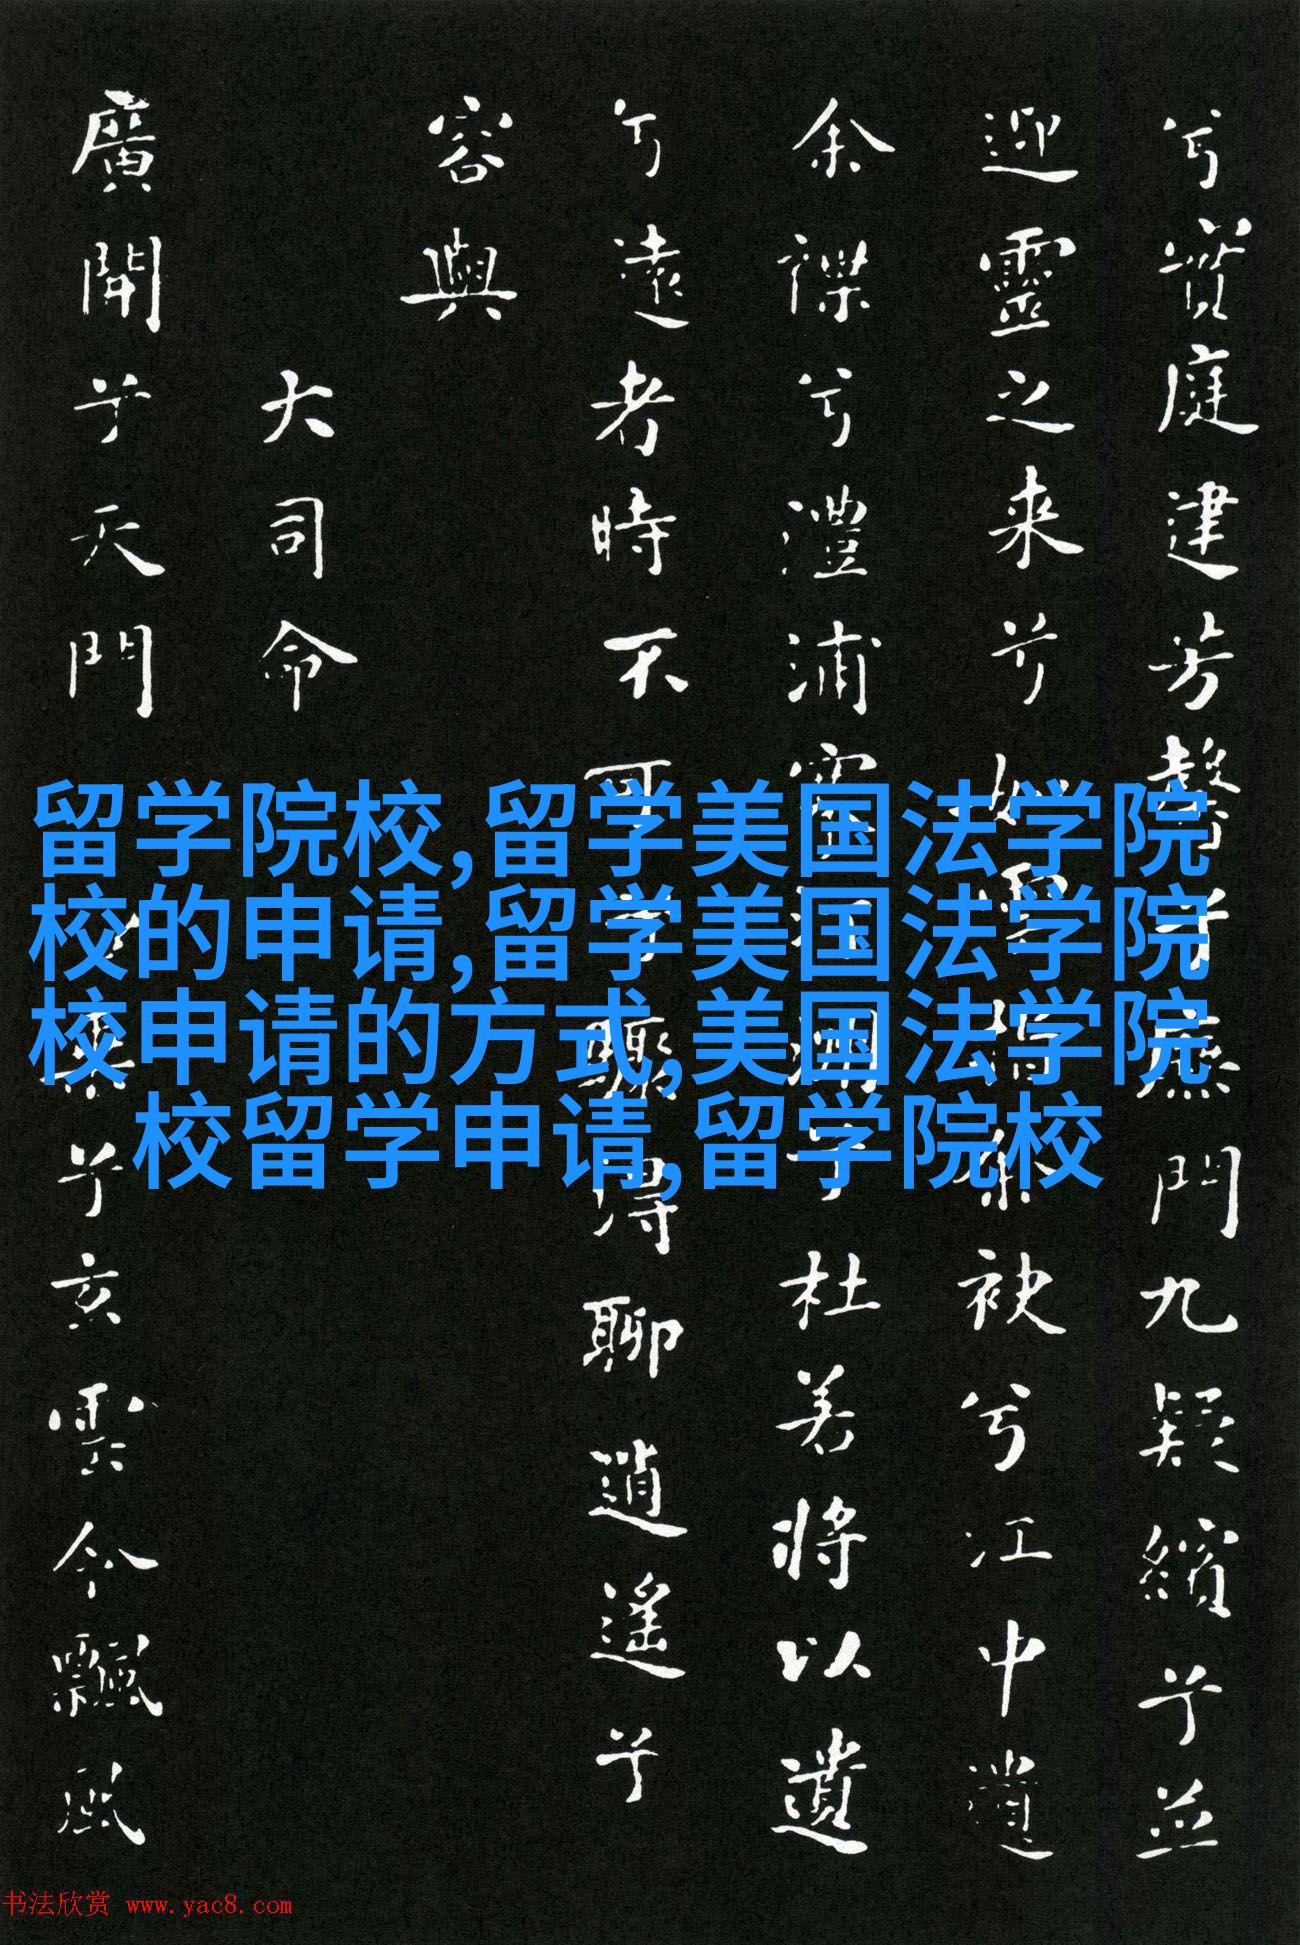 兮實庭建芳馨兮廡門九疑繽兮並
迎靈之来兮如雲捐余袂兮江中遺
余褋兮澧浦搴汀洲兮杜若將以遺
兮遠者時不可兮驟得聊逍遥兮
容與
大司命
廣開兮天門乘兮玄雲令飄風
留学院校,留学美国法学院
校的申请,留学美国法学院
校申请的方式,美国法学院
校留学申请,留学院校
书法欣赏 www.yac8.com